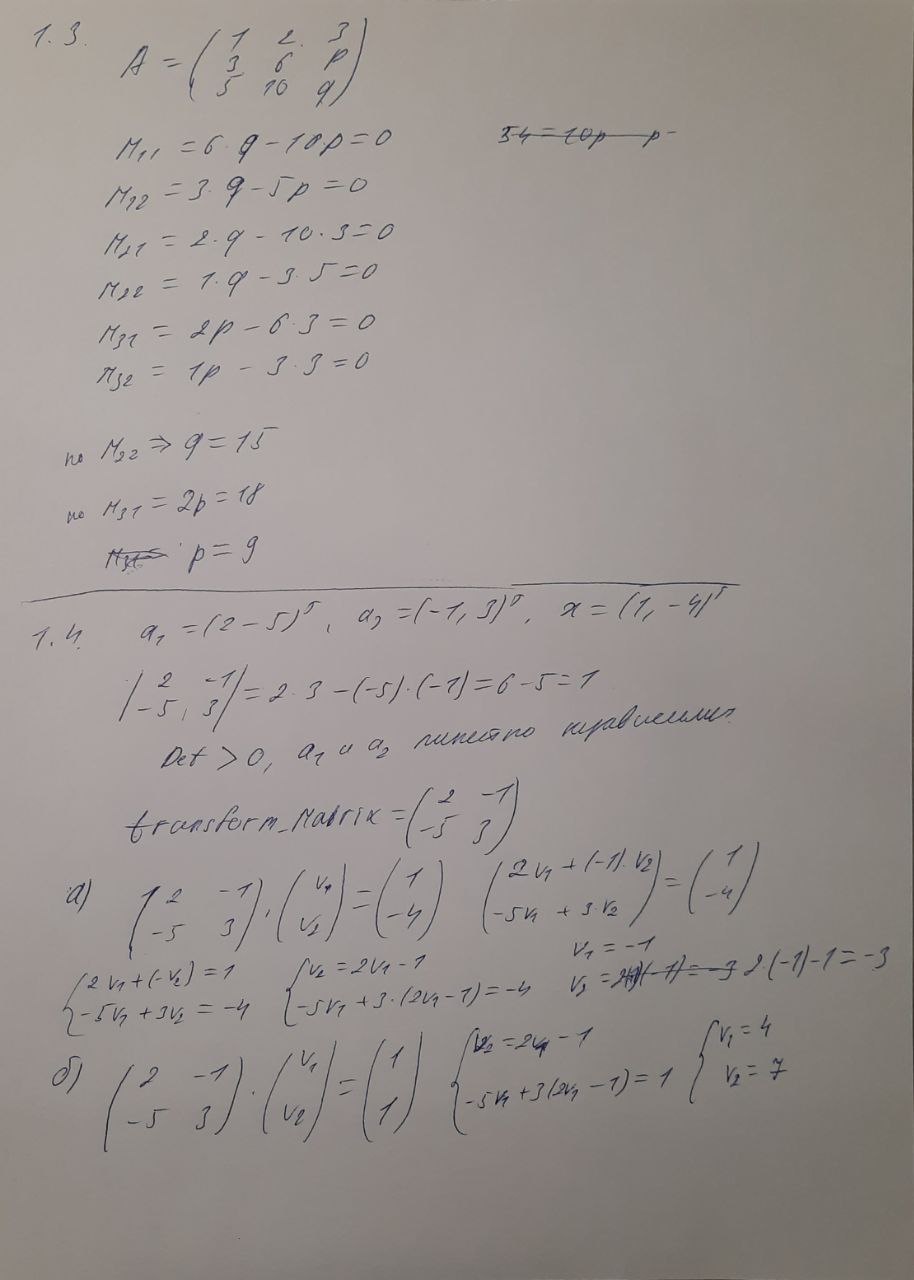 1.3.
A = ( 1 2 3
3 6 p
5 10 q )
M₁₁ = 6·q - 10p = 0
M₁₂ = 3·q - 5p = 0
M₂₁ = 2·q - 10·3 = 0
M₂₂ = 1·q - 3·5 = 0
M₃₁ = 2p - 6·3 = 0
M₃₂ = 1p - 3·3 = 0
по M₂₂ ⇒ q = 15
по M₃₁ = 2p = 18
p = 9
1.4. a₁ = (2 - 5)ᵀ, a₂ = (-1, 3)ᵀ, x = (1, -4)ᵀ
| 2 -1
-5, 3 | = 2·3 - (-5)·(-1) = 6 - 5 = 1
Det > 0, a₁ и a₂ линейно независимы
transform_Matrix = ( 2 -1
-5 3 )
а) ( 2 -1
-5 3 ) · ( v₁
v₂ ) = ( 1
-4 ) ( 2v₁ + (-1)·v₂
-5v₁ + 3·v₂ ) = ( 1
-4 )
{ 2v₁ + (-v₂) = 1
-5v₁ + 3v₂ = -4
{ v₂ = 2v₁ - 1
-5v₁ + 3·(2v₁ - 1) = -4
v₁ = -1
v₂ = 2·(-1) - 1 = -3
б) ( 2 -1
-5 3 ) · ( v₁
v₂ ) = ( 1
1 )
{ v₂ = 2v₁ - 1
-5v₁ + 3(2v₁ - 1) = 1
{ v₁ = 4
v₂ = 7